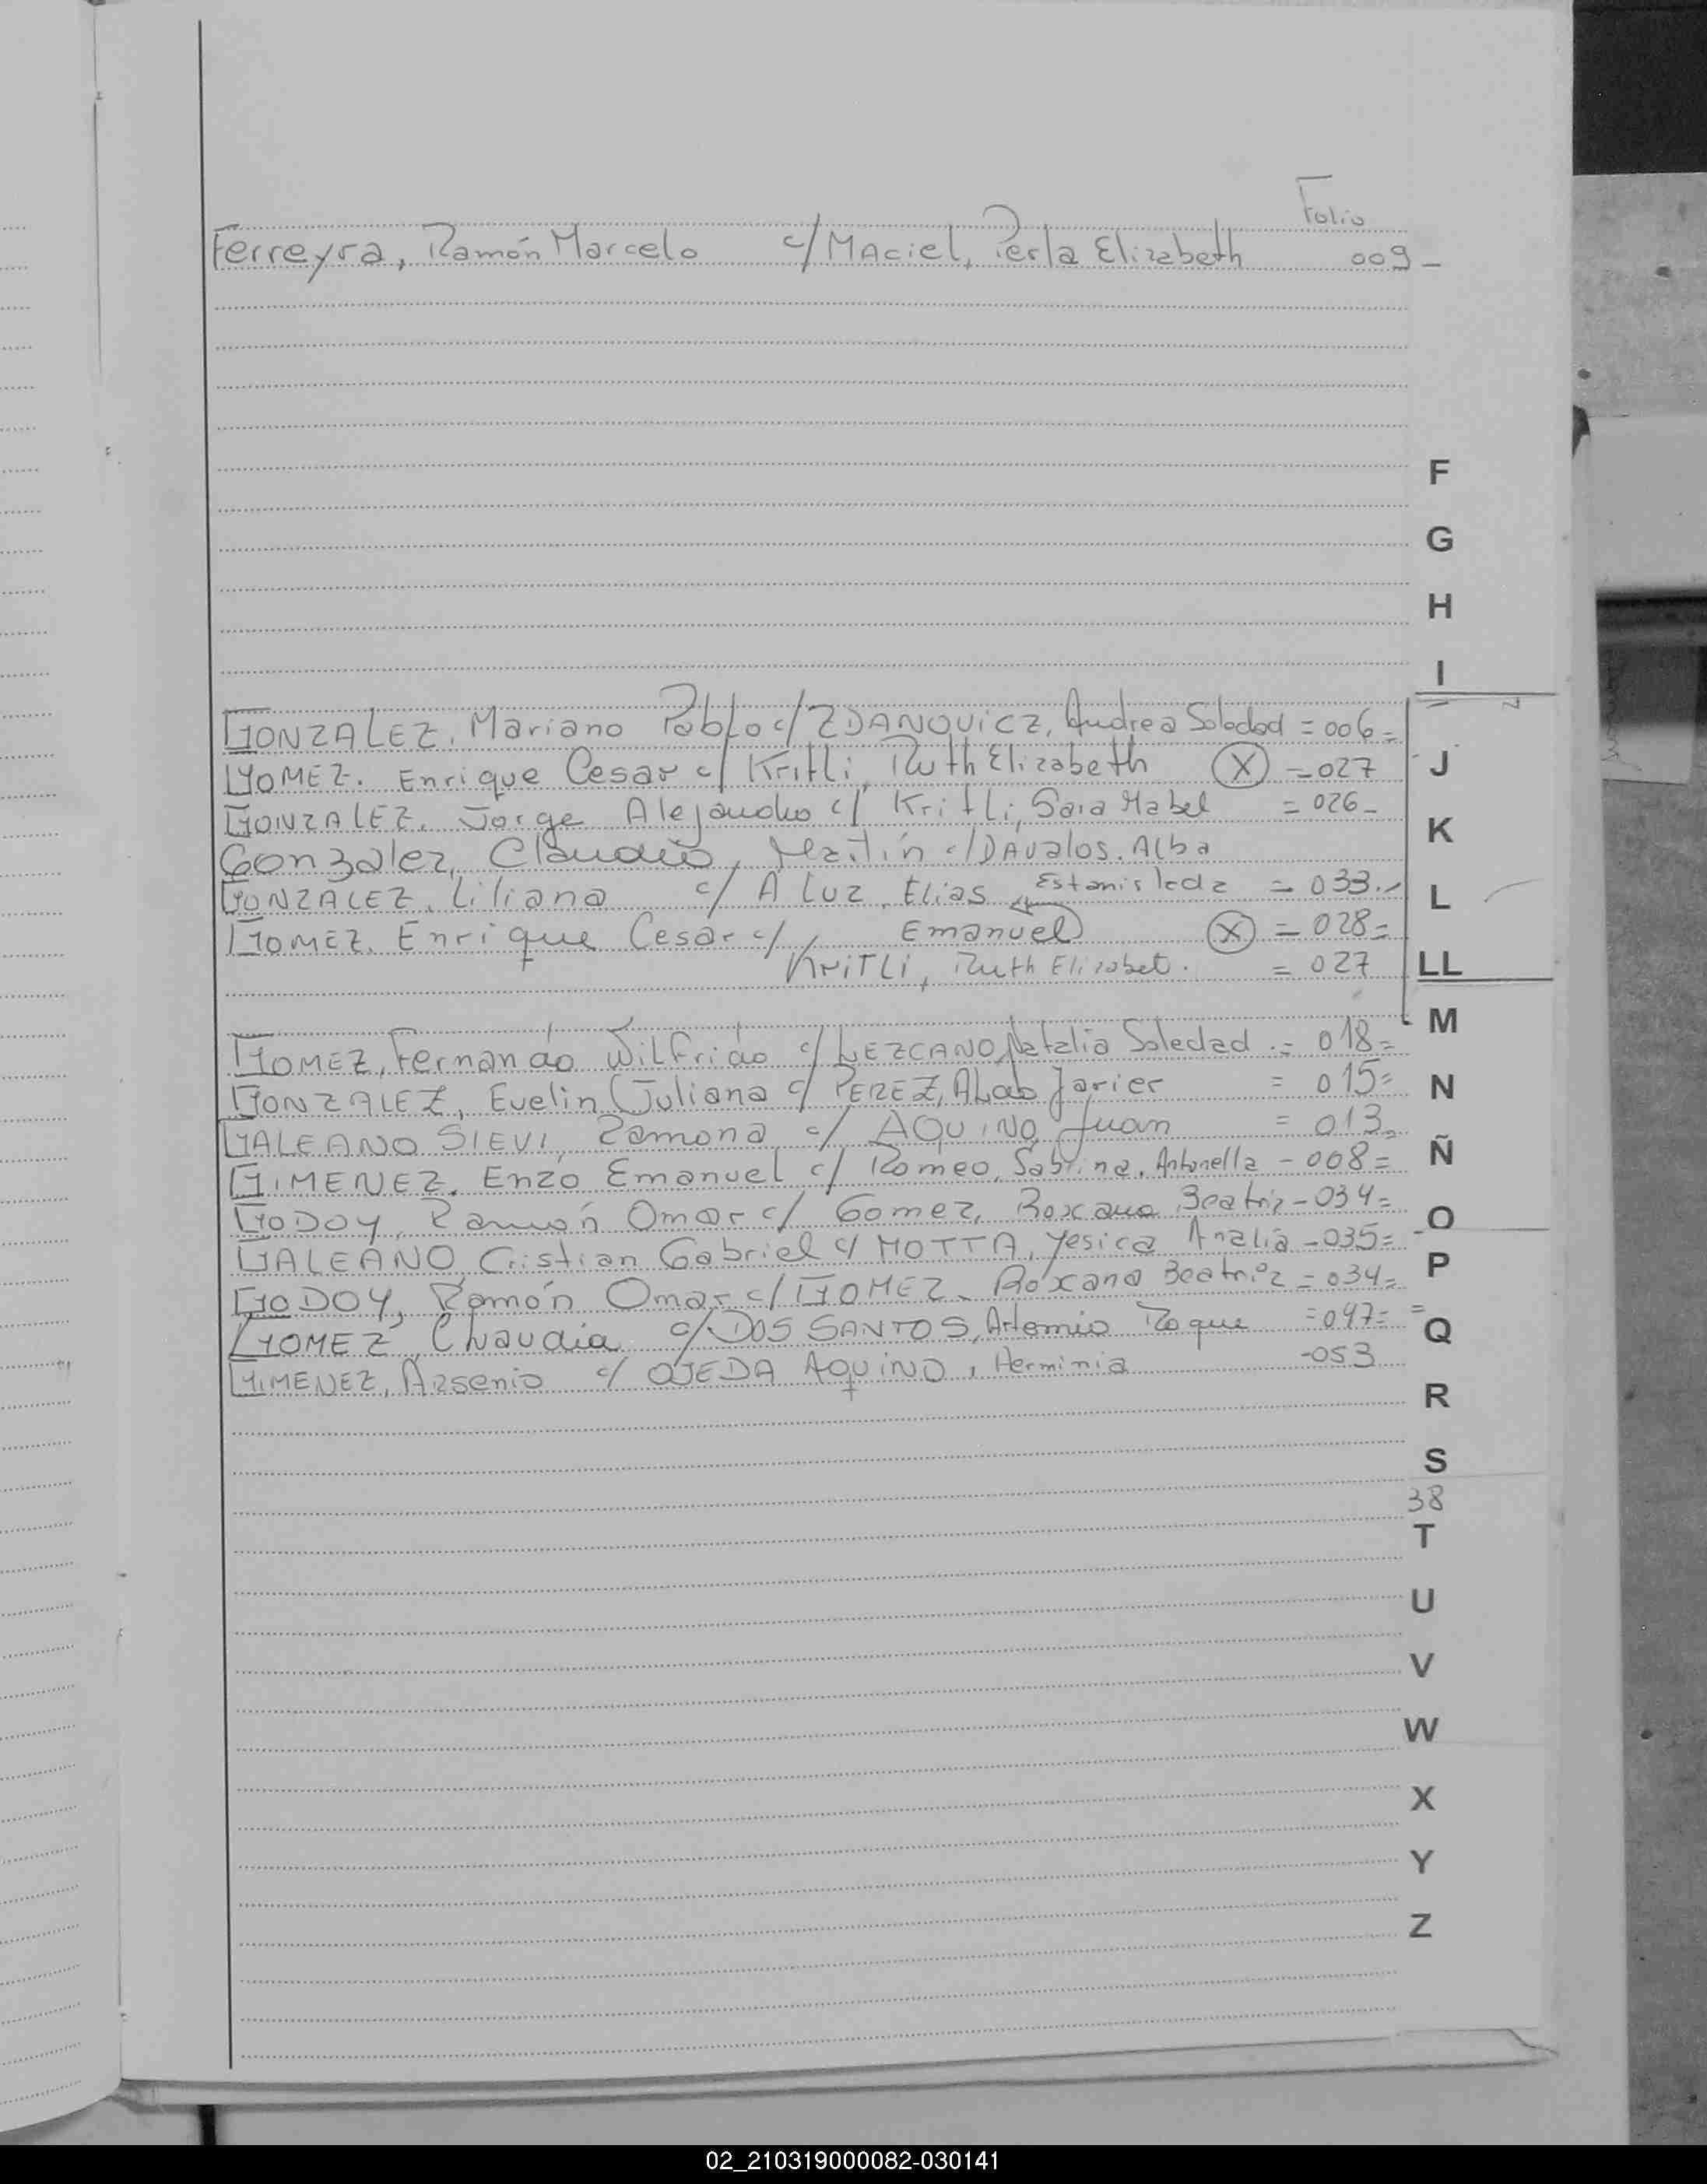 Folio
Ferreyra, Ramón Marcelo c/ Maciel, Perla Elizabeth 009-
F
G
H
I
GONZALEZ, Mariano Pablo c/ ZDANOVICZ, Andrea Soledad = 006=
J
GOMEZ. Enrique Cesar c/ Kritli, Ruth Elizabeth (X) = 027
GONZALEZ, Jorge Alejandro c/ Kritli, Sara Mabel = 026-
K
Gonzalez, Claudio, Martín c/ DAvalos. Alba
GONZALEZ, Liliana c/ A LUZ, Elias Estanislada = 033.-
L
GOMEZ. Enrique Cesar c/ Emanuel (X) = 028=
KRITLI, Ruth Elizabet. = 027
LL
M
GOMEZ, Fernando Wilfrido c/ LEZCANO, Natalia Soledad .= 018=
GONZALEZ, Evelin Juliana c/ PEREZ, ALdo Javier = 015=
N
GALEANO SIEVI, Ramona c/ AQUINO, Juan = 013=
GIMENEZ. Enzo Emanuel c/ Romeo, Sabrina, Antonella - 008=
Ñ
GODOY, Ramón Omar c/ Gomez, Roxana Beatriz - 034=
O
GALEANO, Cristian Gabriel c/ MOTTA, Yesica Analia - 035=
P
GODOY, Ramón Omar c/ GOMEZ, Roxana Beatriz = 034=
GOMEZ, Claudia c/ DOS SANTOS, Artemio Roque = 047=
Q
GIMENEZ, Arsenio c/ OJEDA AQUINO, Herminia -053
R
S
38
T
U
V
W
X
Y
Z
02_210319000082-030141